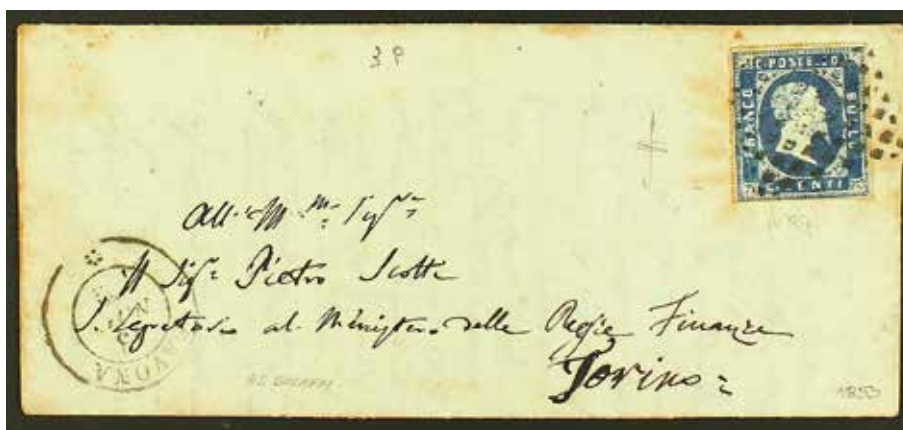 3 P
C. POSTE
FRANCO
BOLLO
CENTI
All' M.mo Sigr
Il Sigr Pietro Scotti
S. Segretario al Ministero delle Regie Finanze
Torino
VONA
1853